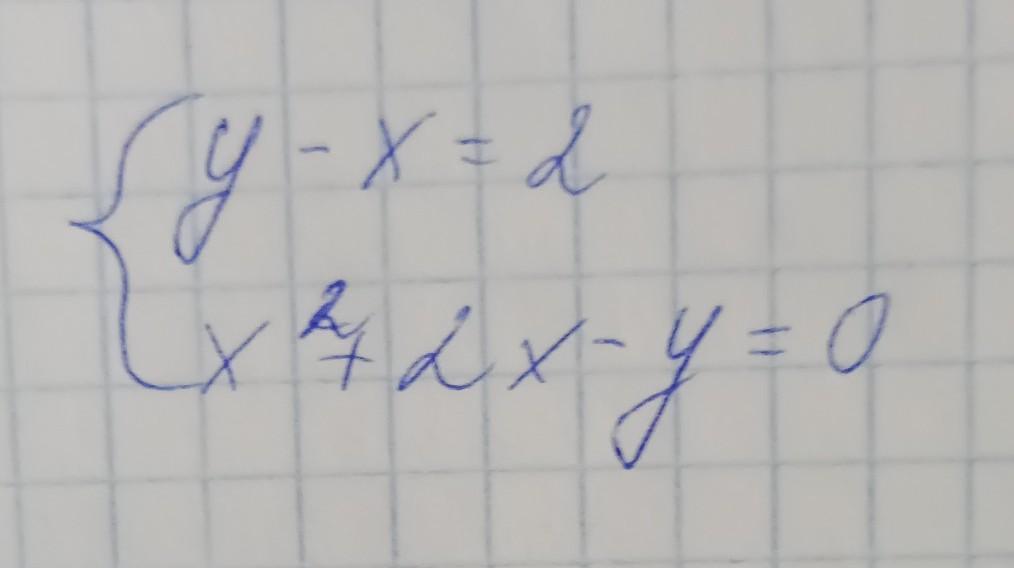 y - x = 2
x² + 2x - y = 0